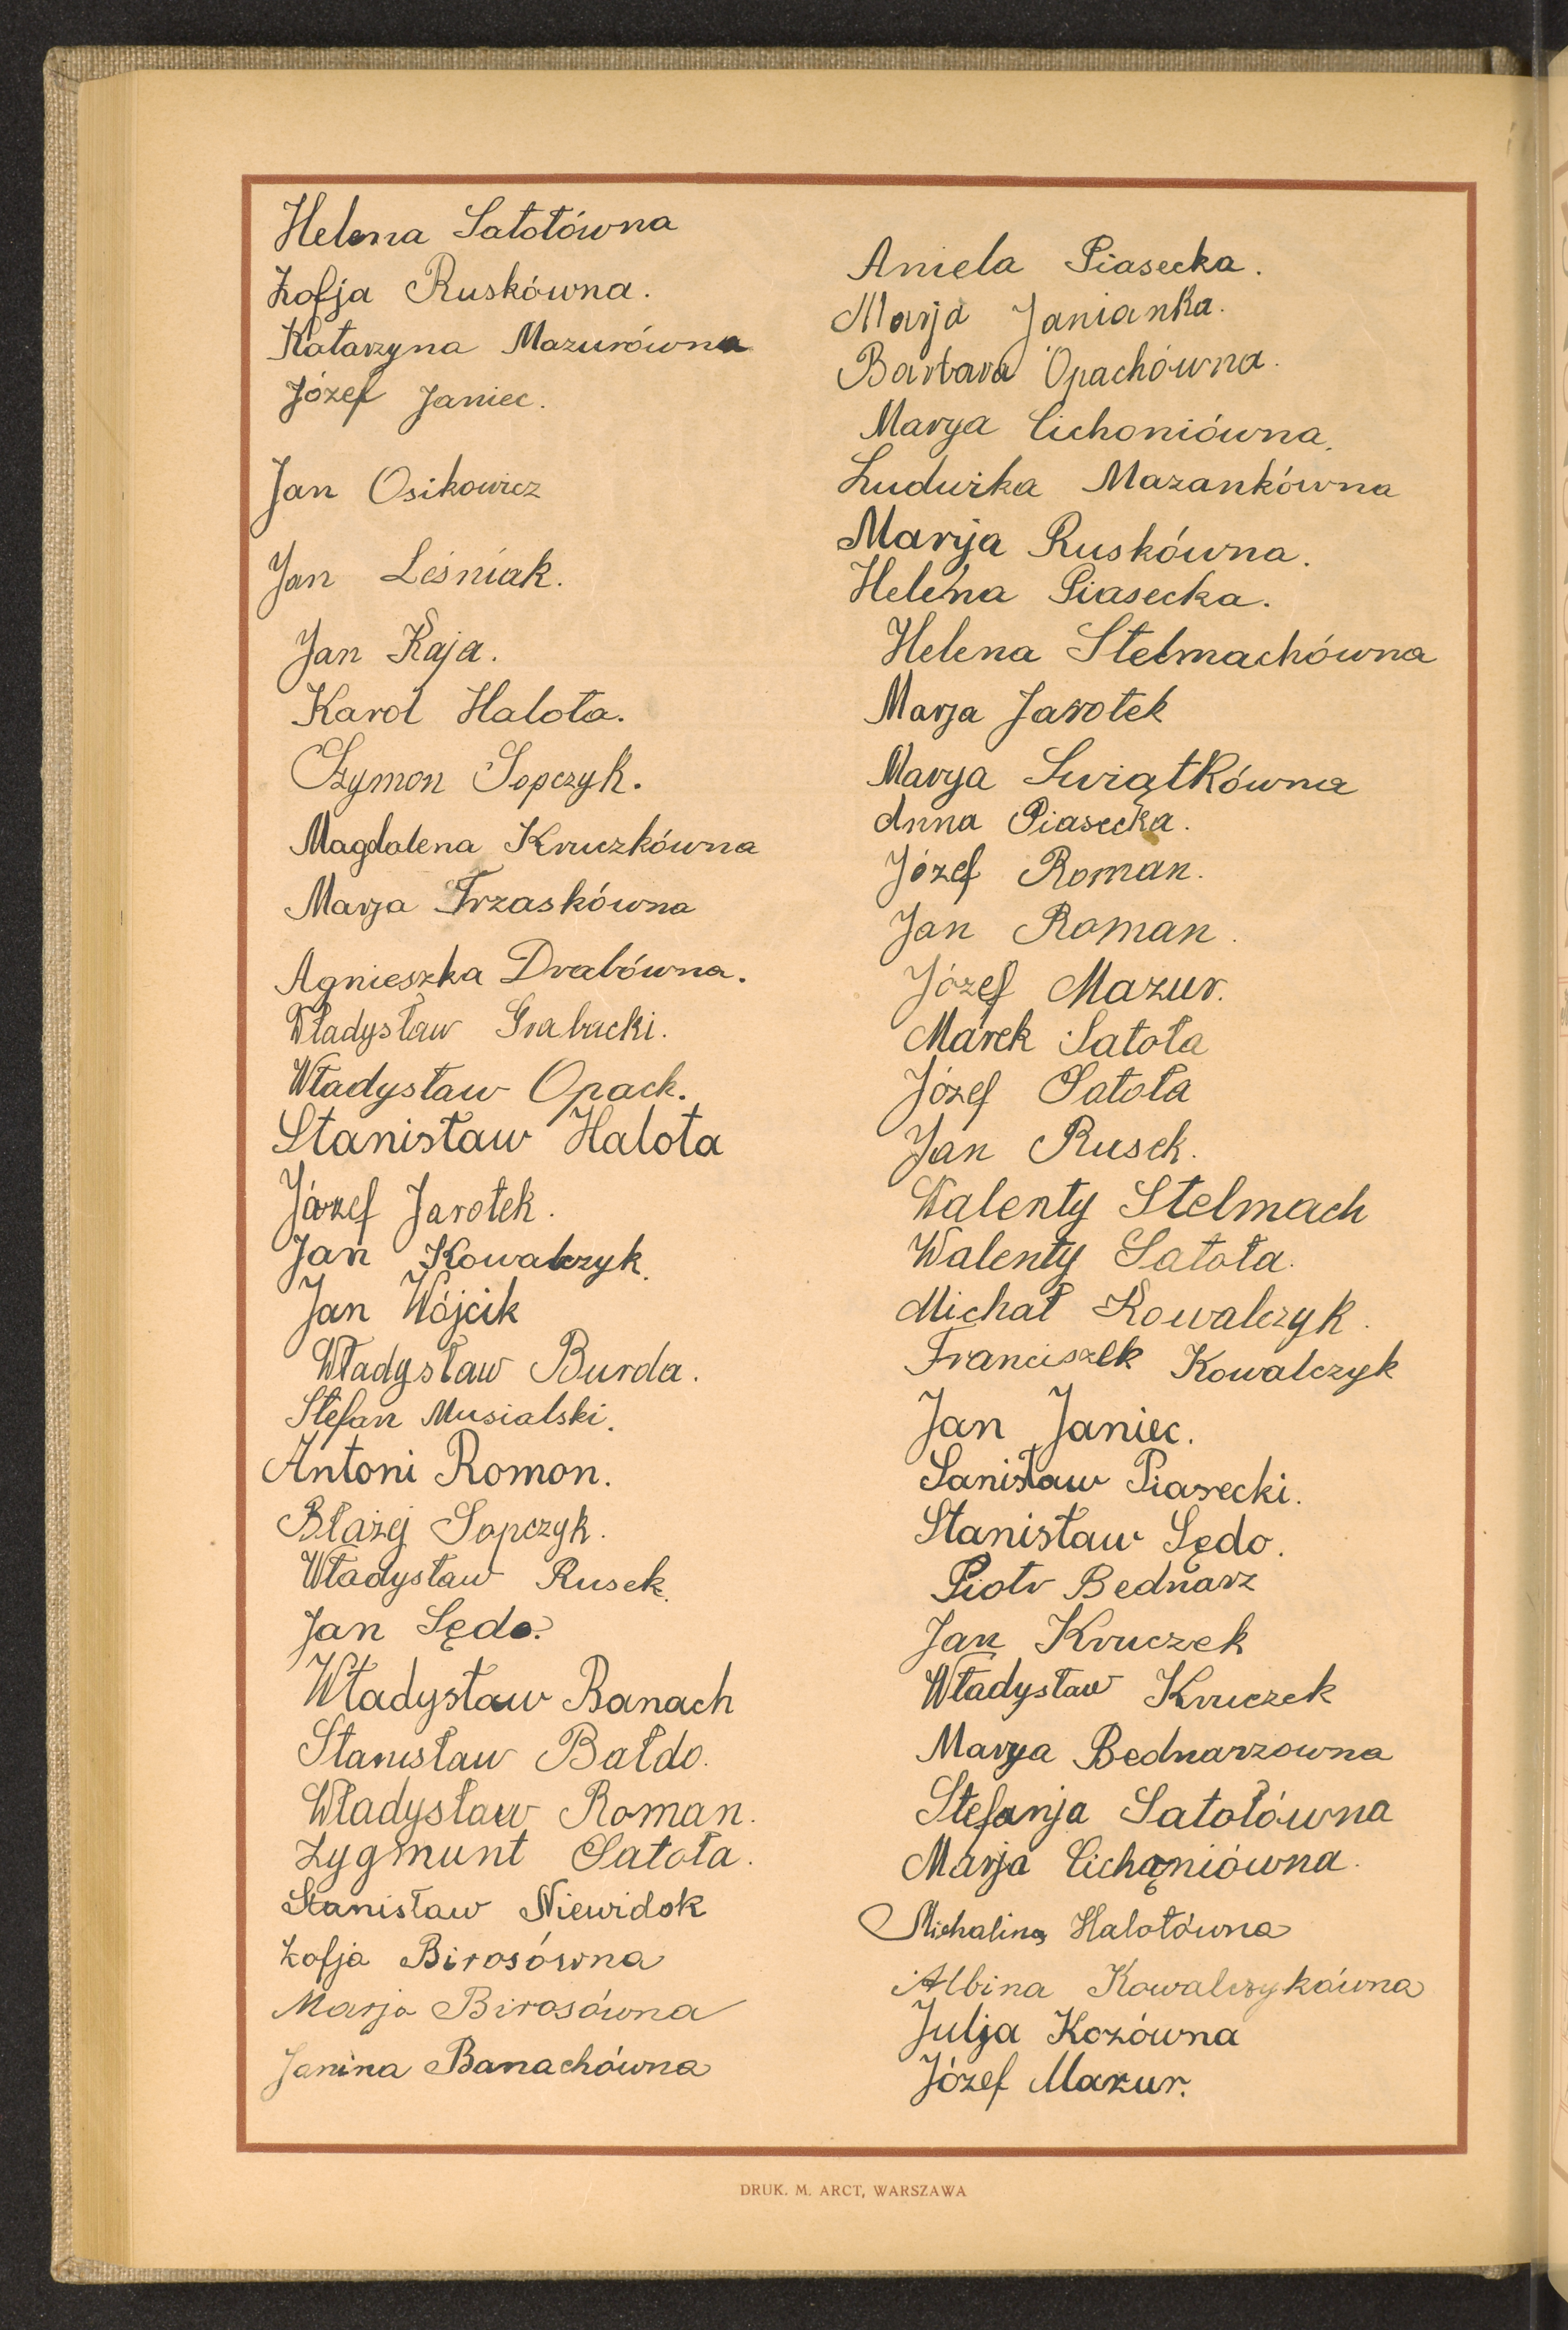 Helena Satołówna
Zofja Ruskówna.
Katarzyna Mazurówna
Józef Janiec.
Jan Osikowicz
Jan Leśniak.
Jan Kaja.
Karol Halota.
Szymon Sopczyk.
Magdalena Kruczkówna
Marja Trzaskówna
Agnieszka Drabówna.
Władysław Grabacki.
Władysław Opack.
Stanisław Halota
Józef Jarotek.
Jan Kowalczyk.
Jan Wójcik
Władysław Burda.
Stefan Musialski.
Antoni Romon.
Błażej Sopczyk.
Władysław Rusek.
Jan Sędo.
Władysław Banach
Stanisław Bałdo.
Władysław Roman.
Zygmunt Satoła.
Stanisław Niewidok
Zofja Birosówna
Marja Birosówna
Janina Banachówna
Aniela Piasecka.
Marja Janianka.
Barbara Opachówna.
Marya Cichoniówna.
Ludwika Mazankówna
Marija Ruskówna.
Helena Piasecka.
Helena Stelmachówna
Marja Jarotek
Marya Swiątkówna
Anna Piasecka.
Józef Roman.
Jan Roman.
Józef Mazur.
Marek Satoła
Józef Satoła
Jan Rusek.
Walenty Stelmach
Walenty Satoła.
Michał Kowalczyk.
Franciszek Kowalczyk
Jan Janiec.
Sanisław Piasecki.
Stanisław Sędo.
Piotr Bednarz
Jan Kruczek
Władysław Kruczek
Marya Bednarzowna
Stefanja Satołówna
Marja Cichąniówna.
Michalina Halotówna
Albina Kowalczykówna
Julja Kozówna
Józef Mazur.
DRUK. M. ARCT, WARSZAWA